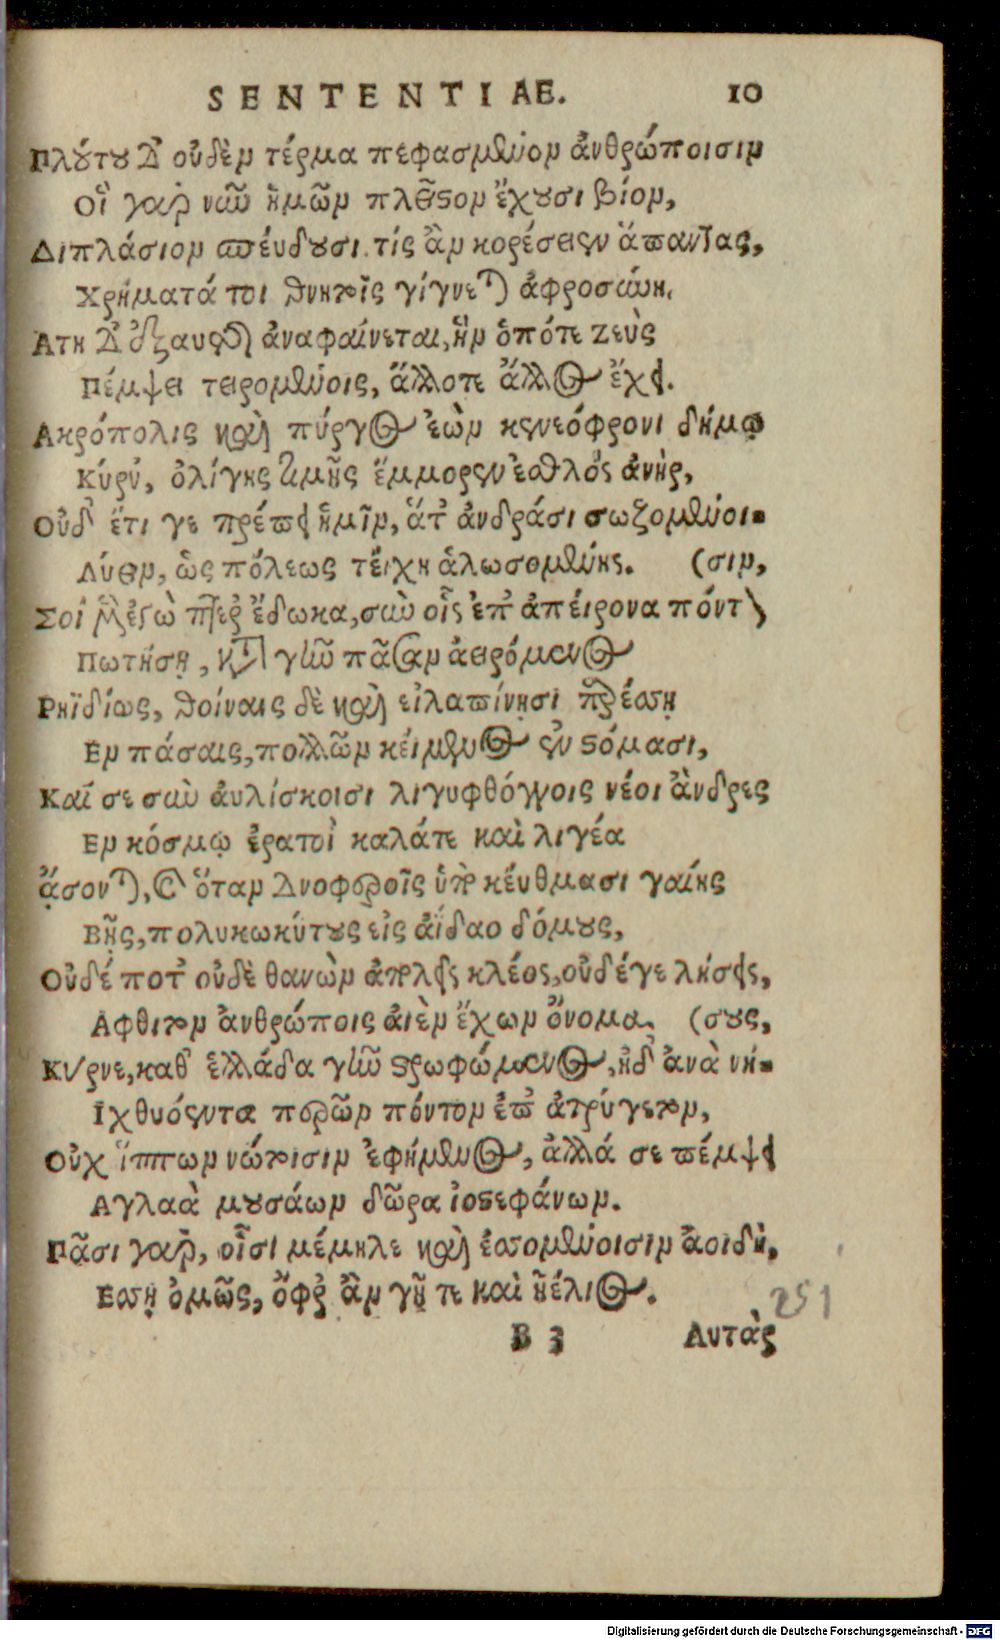 SENTENTIAE. 10
Πλούτου δ' οὐδὲν τέρμα πεφασμένον ἀνθρώποισιν
Οἳ γὰρ νῦν ἡμῶν πλεῖστον ἔχουσι βίον,
Διπλάσιον σπεύδουσι. τίς ἂν κορέσειεν ἅπαντας,
Χρήματά τοι θνητοῖς γίγνεται ἀφροσύνη.
Ατη δ' ἐξ αὐτῆς ἀναφαίνεται, ἣν ὁπότε Ζεὺς
Πέμψει τειρομένοις, ἄλλοτε ἄλλος ἔχει.
Ακρόπολις καὶ πύργος ἐὼν κενεόφρονι δήμῳ
Κύρν', ὀλίγης τιμῆς ἔμμορεν ἐσθλὸς ἀνὴρ,
Οὐδ' ἔτι γε πρέπει ἡμῖν, ἅτ' ἀνδράσι σωζομένοι-
Λύειν, ὡς πόλεως τείχη ἁλωσομένης. (σιν,
Σοὶ μὲν ἐγὼ πτέρ' ἔδωκα, σὺν οἷς ἐπ' ἀπείρονα πόντον
Πωτήσῃ, κατὰ γῆν πᾶσαν ἀειρόμενος
Ρηϊδίως, θοίναις δὲ καὶ εἰλαπίνῃσι παρέσσῃ
Εν πάσαις, πολλῶν κείμενος ἐν στόμασι,
Καί σε σὺν αὐλίσκοισι λιγυφθόγγοις νέοι ἄνδρες
Εν κόσμῳ ἐρατοὶ καλά τε καὶ λιγέα
ᾄσονται, καὶ ὅταν δνοφεροῖς ὑπὸ κεύθμασι γαίης
Βῇς, πολυκωκύτους εἰς ἀΐδαο δόμους,
Οὐδέ ποτ' οὐδὲ θανὼν ἀπολεῖς κλέος, οὐδέ γε λήσεις,
Αφθιτον ἀνθρώποις αἰὲν ἔχων ὄνομα. (σους,
Κύρνε, καθ' ἑλλάδα γῆν στρωφώμενος, ἠδ' ἀνὰ νή-
Ιχθυόεντα περῶν πόντον ἐπ' ἀτρύγετον,
Οὐχ ἵππων νώτοισιν ἐφήμενος, ἀλλά σε πέμψει
Αγλαὰ μουσάων δῶρα ἰοστεφάνων.
Πᾶσι γὰρ, οἷσι μέμηλε καὶ ἐσσομένοισιν ἀοιδὴ,
Εσσῃ ὁμῶς, ὄφρ' ἂν γῆ τε καὶ ἠέλιος.
251
B 3 Αυτὰρ
Digitalisierung gefördert durch die Deutsche Forschungsgemeinschaft - DFG